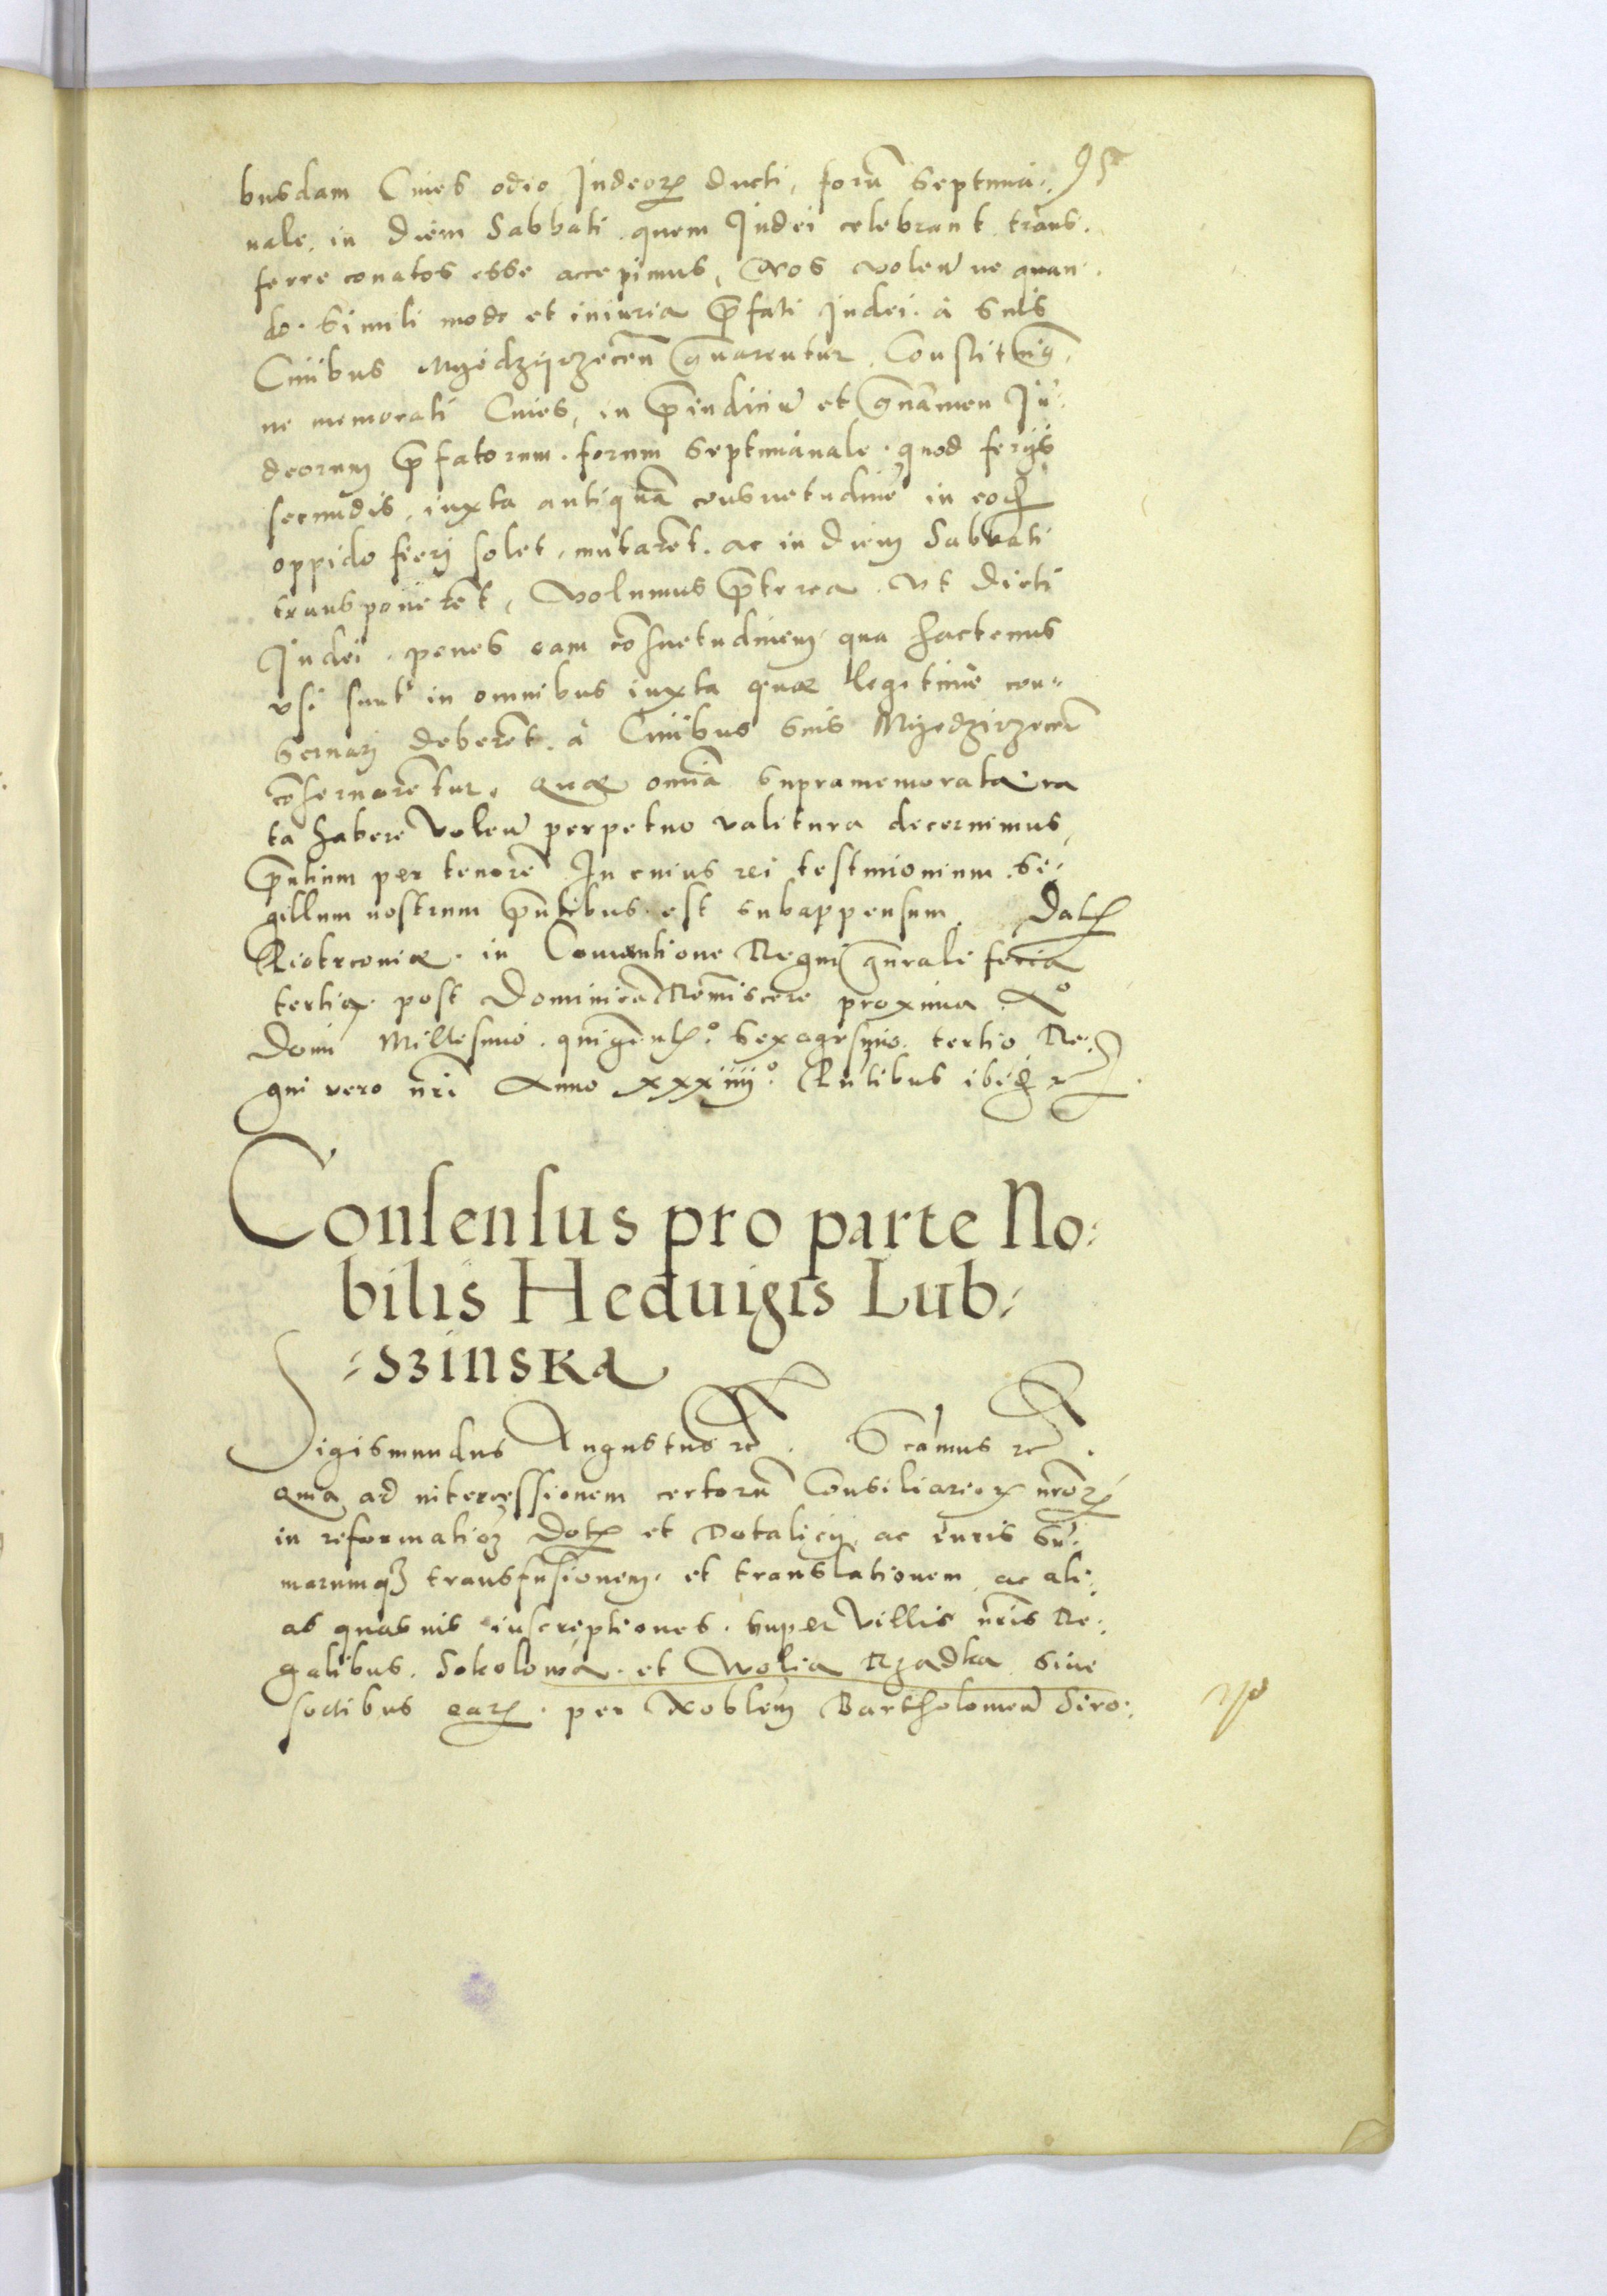 95
busdam Ciues odio Iudeorꝝ ducti, forũ septima⸗
nale, in diem Sabbati quem Iudei celebrant trans⸗
ferre conatos esse accepimus, Nos volen̄ ne quan⸗
do simili modo et iniuria p̄fati Iudei à suis
Ciuibus Myedzyrzecen̄ g̃uarentur, Constit
ne memorati Ciues, in p̄iudiciũ et g̃uamen Iu⸗
deorum p̄fatorum forum septimanale quod ferijs
secundis, iuxta antiquã consuetudinẽ in eodꝫ
oppido fierj solet, mutarẽt, ac in diem Sabbati
transponerẽt, Volumus p̄terea vt dicti
Iudei penes eam cõsuetudinem qua hactenus
vsi sunt in omnibus iuxta quæ legitimè con⸗
seruarj deberẽt, à Ciuibus suis Myedzirzecen̄
cõseruarẽtur. Quæ omĩa supramemorata ra
ta habere volen̄ perpetuo valitura decernimus,
p̄ntium per tenorẽ In cuius rei testimonium si⸗
gillum nostrum p̄ntibus est subappensum. Datꝫ
Piotrcouiæ in Conuentione Regni gñrali feria
tertia post Dominicã Remiscere proxima Aº
Domi Millesimo quigentꝫº sexagesimo tertio Re⸗
gni vero nr̃i Anno xxxiiijº. P̄ntibus ibidꝫ
Consensus pro parte No⸗
bilis Heduigis Lub⸗
⸗szinska
Sigismundus Augustus rc̃. Sc̃amus rc̃.
Quia ad intercessionem certorũ Consiliariorꝝ nr̃orꝝ
in reformatioꝫ Dotꝫ et Dotalicij, ac iuris sũ⸗
marumqꝫ transfusionem et translationem, ac ali⸗
as quasuis inscriptiones super villis nr̃is Re⸗
galibus Sokolowa et Wolia Rzadka siue
sortibus earꝝ per Noblem Bartholomeũ Siro⸗